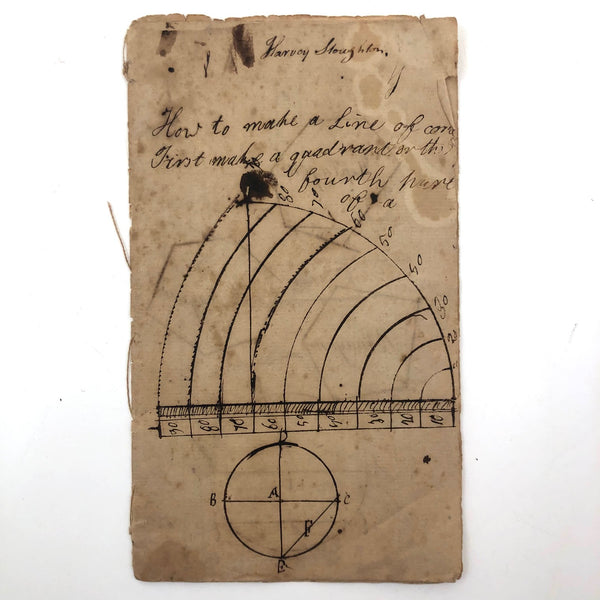 Harvey Stoughton.
How to make a Line of
First make a quadrant or the
fourth part
of a
80
70
60
50
40
30
20
90 80 70 60 50 40 30 20 10
B A C
F
E